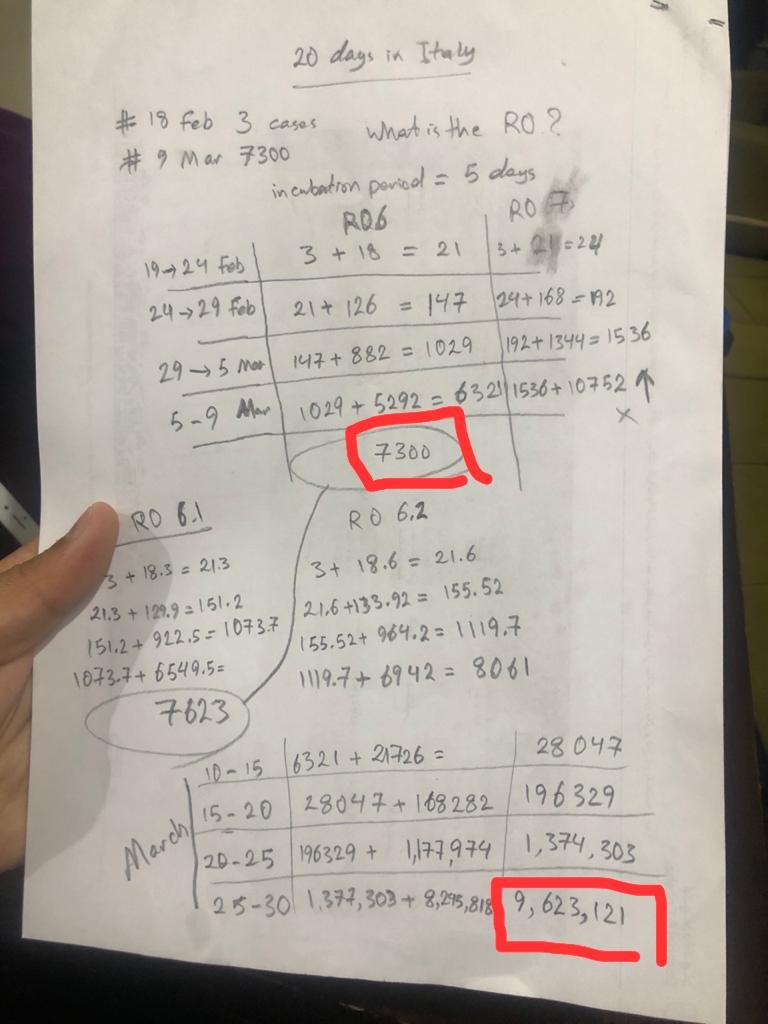 20 days in Italy
# 18 Feb 3 cases What is the RO?
# 9 Mar 7300
incubation period = 5 days
RO6 RO 7
19→24 Feb 3 + 18 = 21 3 + 21 = 24
24→29 Feb 21 + 126 = 147 24+168=192
29→5 Mar 147 + 882 = 1029 192+1344=1536
5-9 Mar 1029 + 5292 = 6321 1536+10752 ↑
x
7300
RO 6.1 RO 6.2
3 + 18.3 = 21.3 3 + 18.6 = 21.6
21.3 + 129.9 = 151.2 21.6+133.92 = 155.52
151.2 + 922.5 = 1073.7 155.52+ 964.2 = 1119.7
1073.7 + 6549.5= 1119.7 + 6942 = 8061
7623
March
10-15 6321 + 21726 = 28047
15-20 28047 + 168282 196329
20-25 196329 + 1,177,974 1,374,303
25-30 1,377,303 + 8,295,818 9,623,121